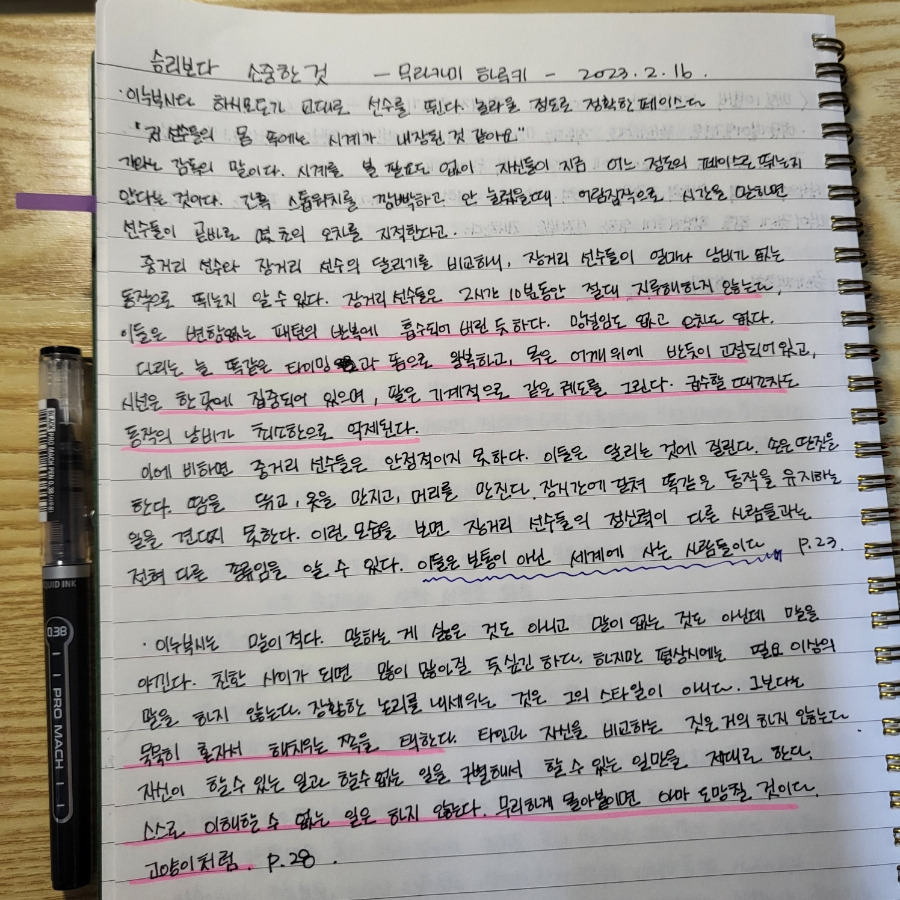 승리보다 소중한 것 - 무라카미 하루키 - 2023. 2. 16.
· 이누부시다 하시모토가 교대로 선수를 뛴다. 놀라울 정도로 정확한 페이스다
"저 선수들의 몸 속에는 시계가 내장된 것 같아요"
가와노 감독의 말이다. 시계를 볼 필요도 없이 자신들이 지금 어느 정도의 페이스로 뛰는지
안다는 것이다. 간혹 스톱워치를 깜빡하고 안 눌렀을때 어림짐작으로 시간을 말하면
선수들이 곧바로 몇 초의 오차를 지적한다고.
중거리 선수와 장거리 선수의 달리기를 비교하니, 장거리 선수들이 얼마나 낭비가 없는
동작으로 뛰는지 알 수 있다. 장거리 선수들은 2시간 10분동안 절대 지루해하지 않는다.
이들은 변함없는 패턴의 반복에 흡수되어 버린 듯 하다. 망설임도 없고 오차도 없다.
다리는 늘 똑같은 타이밍과 폼으로 왕복하고, 목은 어깨 위에 반듯이 고정되어 있고,
시선은 한 곳에 집중되어 있으며, 팔은 기계적으로 같은 궤도를 그린다. 급수할 때까지도
동작의 낭비가 최소한으로 억제된다.
이에 비하면 중거리 선수들은 안정적이지 못하다. 이들은 달리는 것에 질린다. 손은 딴짓을
한다. 땀을 닦고, 옷을 만지고, 머리를 만진다. 장시간에 걸쳐 똑같은 동작을 유지하는
일을 견디지 못한다. 이런 모습을 보면 장거리 선수들의 정신력이 다른 사람들과는
전혀 다른 종류임을 알 수 있다. 이들은 보통이 아닌 세계에 사는 사람들이다 P.23.
· 이누부시는 말이 적다. 말하는 게 싫은 것도 아니고 말이 없는 것도 아닌데 말을
아낀다. 친한 사이가 되면 말이 많아질 듯싶긴 하다. 하지만 평상시에는 필요 이상의
말을 하지 않는다. 장황한 논리를 내세우는 것은 그의 스타일이 아니다. 그보다는
묵묵히 혼자서 해치우는 쪽을 택한다. 타인과 자신을 비교하는 짓은 거의 하지 않는다
자신이 할 수 있는 일과 할 수 없는 일을 구별해서 할 수 있는 일만을 제대로 한다.
스스로 이해할 수 없는 일은 하지 않는다. 무리하게 몰아붙이면 아마 도망칠 것이다.
고양이처럼. P.28.
LIQUID INK
0.38
PRO MACH